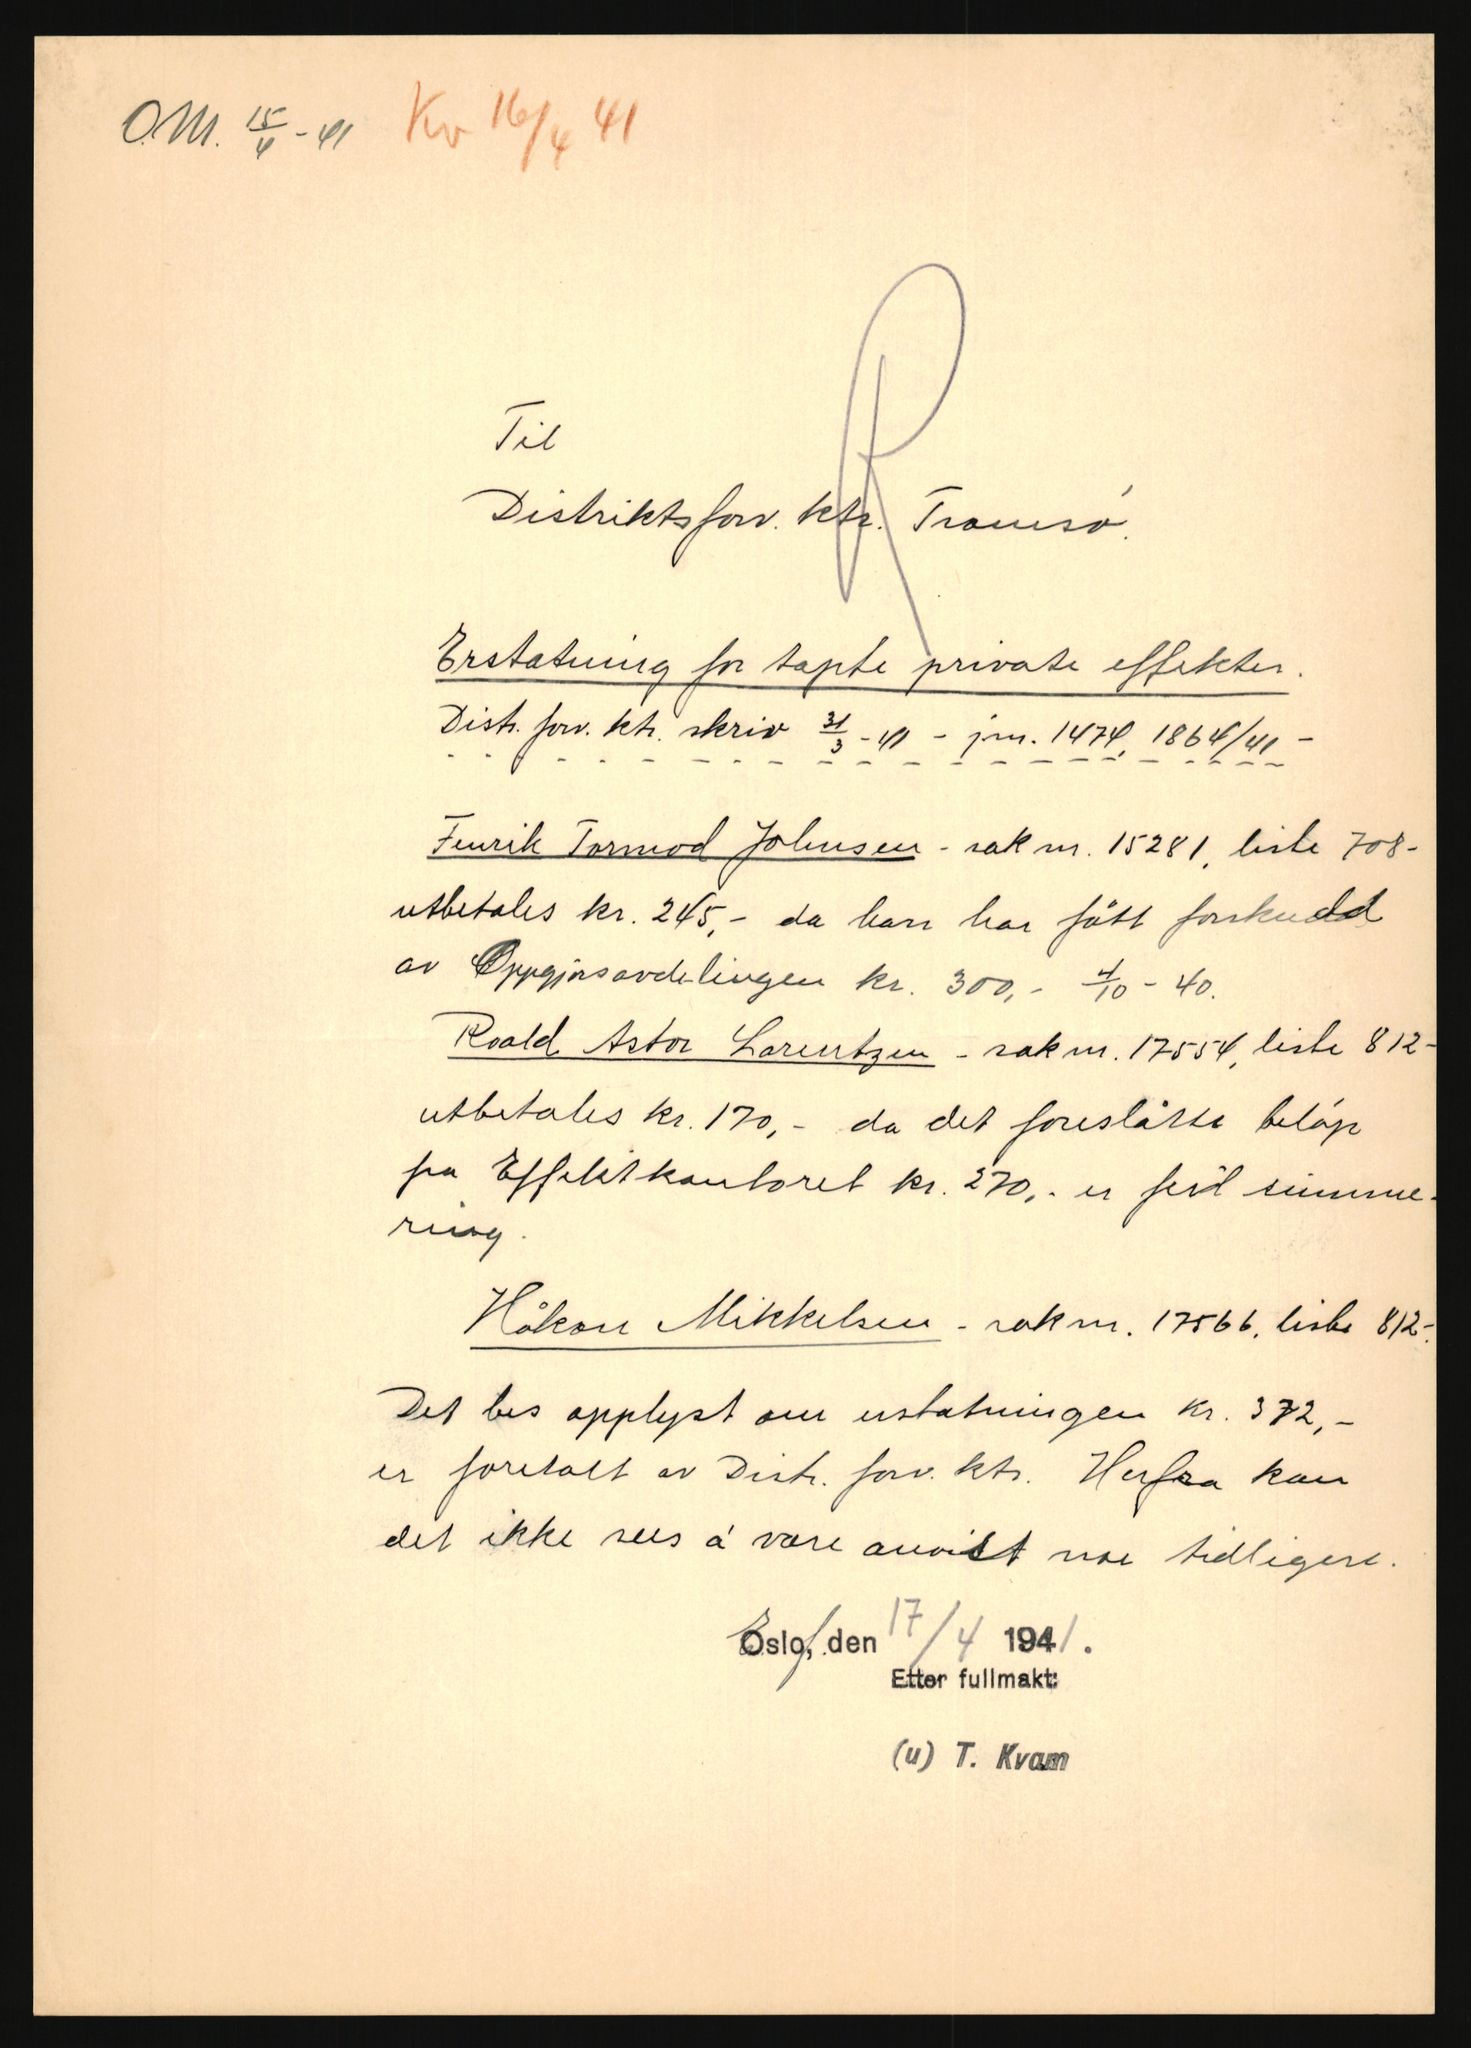 O.M. 15/4 - 41 Kv 16/4 41
R
Til
Distriktsforv. ktr. Tromsø.
Erstatning for tapte private effekter.
Distr. forv. ktr. skriv 31/3 - 41 - jnr. 1474, 1864/41 -
Fenrik Tormod Johnsen - sak nr. 15281, liste 708-
utbetales kr. 245,- da han har fått forskudd
av Oppgjørsavdelingen kr. 300,- 4/10 - 40.
Roald Astor Lorentzen - sak nr. 17554, liste 812-
utbetales kr. 170,- da det foreslåtte beløp
fra Effektkontoret kr. 270,- er feil summe-
ring.
Håkon Mikkelsen - sak nr. 17566, liste 812-.
Det bes opplyst om erstatningen kr. 372,-
er foretalt av Distr. forv. ktr. Herfra kan
det ikke sees å være anvist noe tidligere.
Oslo, den 17/4 1941.
Etter fullmakt:
(u) T. Kvam